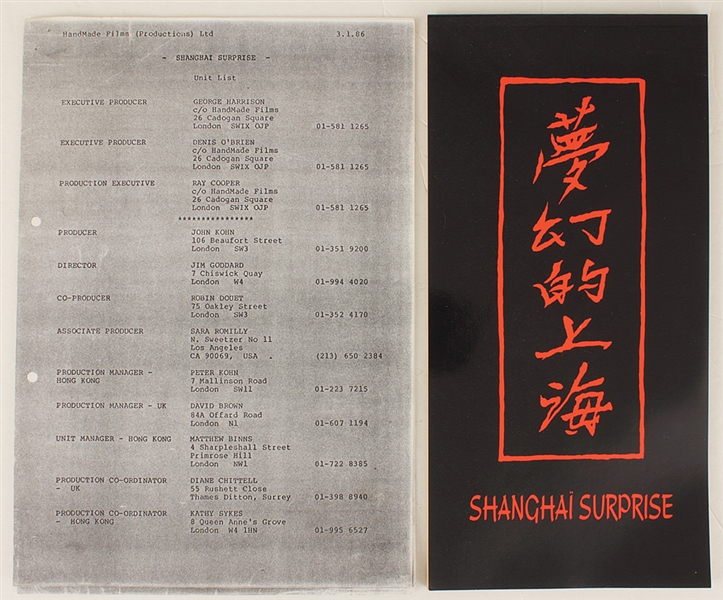 HandMade Films (Productions) Ltd 3.1.86
- SHANGHAI SURPRISE -
Unit List
EXECUTIVE PRODUCER GEORGE HARRISON
c/o HandMade Films
26 Cadogan Square
London SW1X OJP 01-581 1265
EXECUTIVE PRODUCER DENIS O'BRIEN
c/o HandMade Films
26 Cadogan Square
London SW1X OJP 01-581 1265
PRODUCTION EXECUTIVE RAY COOPER
c/o HandMade Films
26 Cadogan Square
London SW1X OJP 01-581 1265
****************
PRODUCER JOHN KOHN
106 Beaufort Street
London SW3 01-351 9200
DIRECTOR JIM GODDARD
7 Chiswick Quay
London W4 01-994 4020
CO-PRODUCER ROBIN DOUET
75 Oakley Street
London SW3 01-352 4170
ASSOCIATE PRODUCER SARA ROMILLY
N. Sweetzer No 11
Los Angeles
CA 90069, USA (213) 650 2384
PRODUCTION MANAGER - PETER KOHN
HONG KONG 7 Mallinson Road
London SW11 01-223 7215
PRODUCTION MANAGER - UK DAVID BROWN
84A Offard Road
London N1 01-607 1194
UNIT MANAGER - HONG KONG MATTHEW BINNS
4 Sharpleshall Street
Primrose Hill
London NW1 01-722 8385
PRODUCTION CO-ORDINATOR DIANE CHITTELL
- UK 55 Rushett Close
Thames Ditton, Surrey 01-398 8940
PRODUCTION CO-ORDINATOR KATHY SYKES
- HONG KONG 8 Queen Anne's Grove
London W4 1HN 01-995 6527
夢幻的上海
SHANGHAI SURPRISE